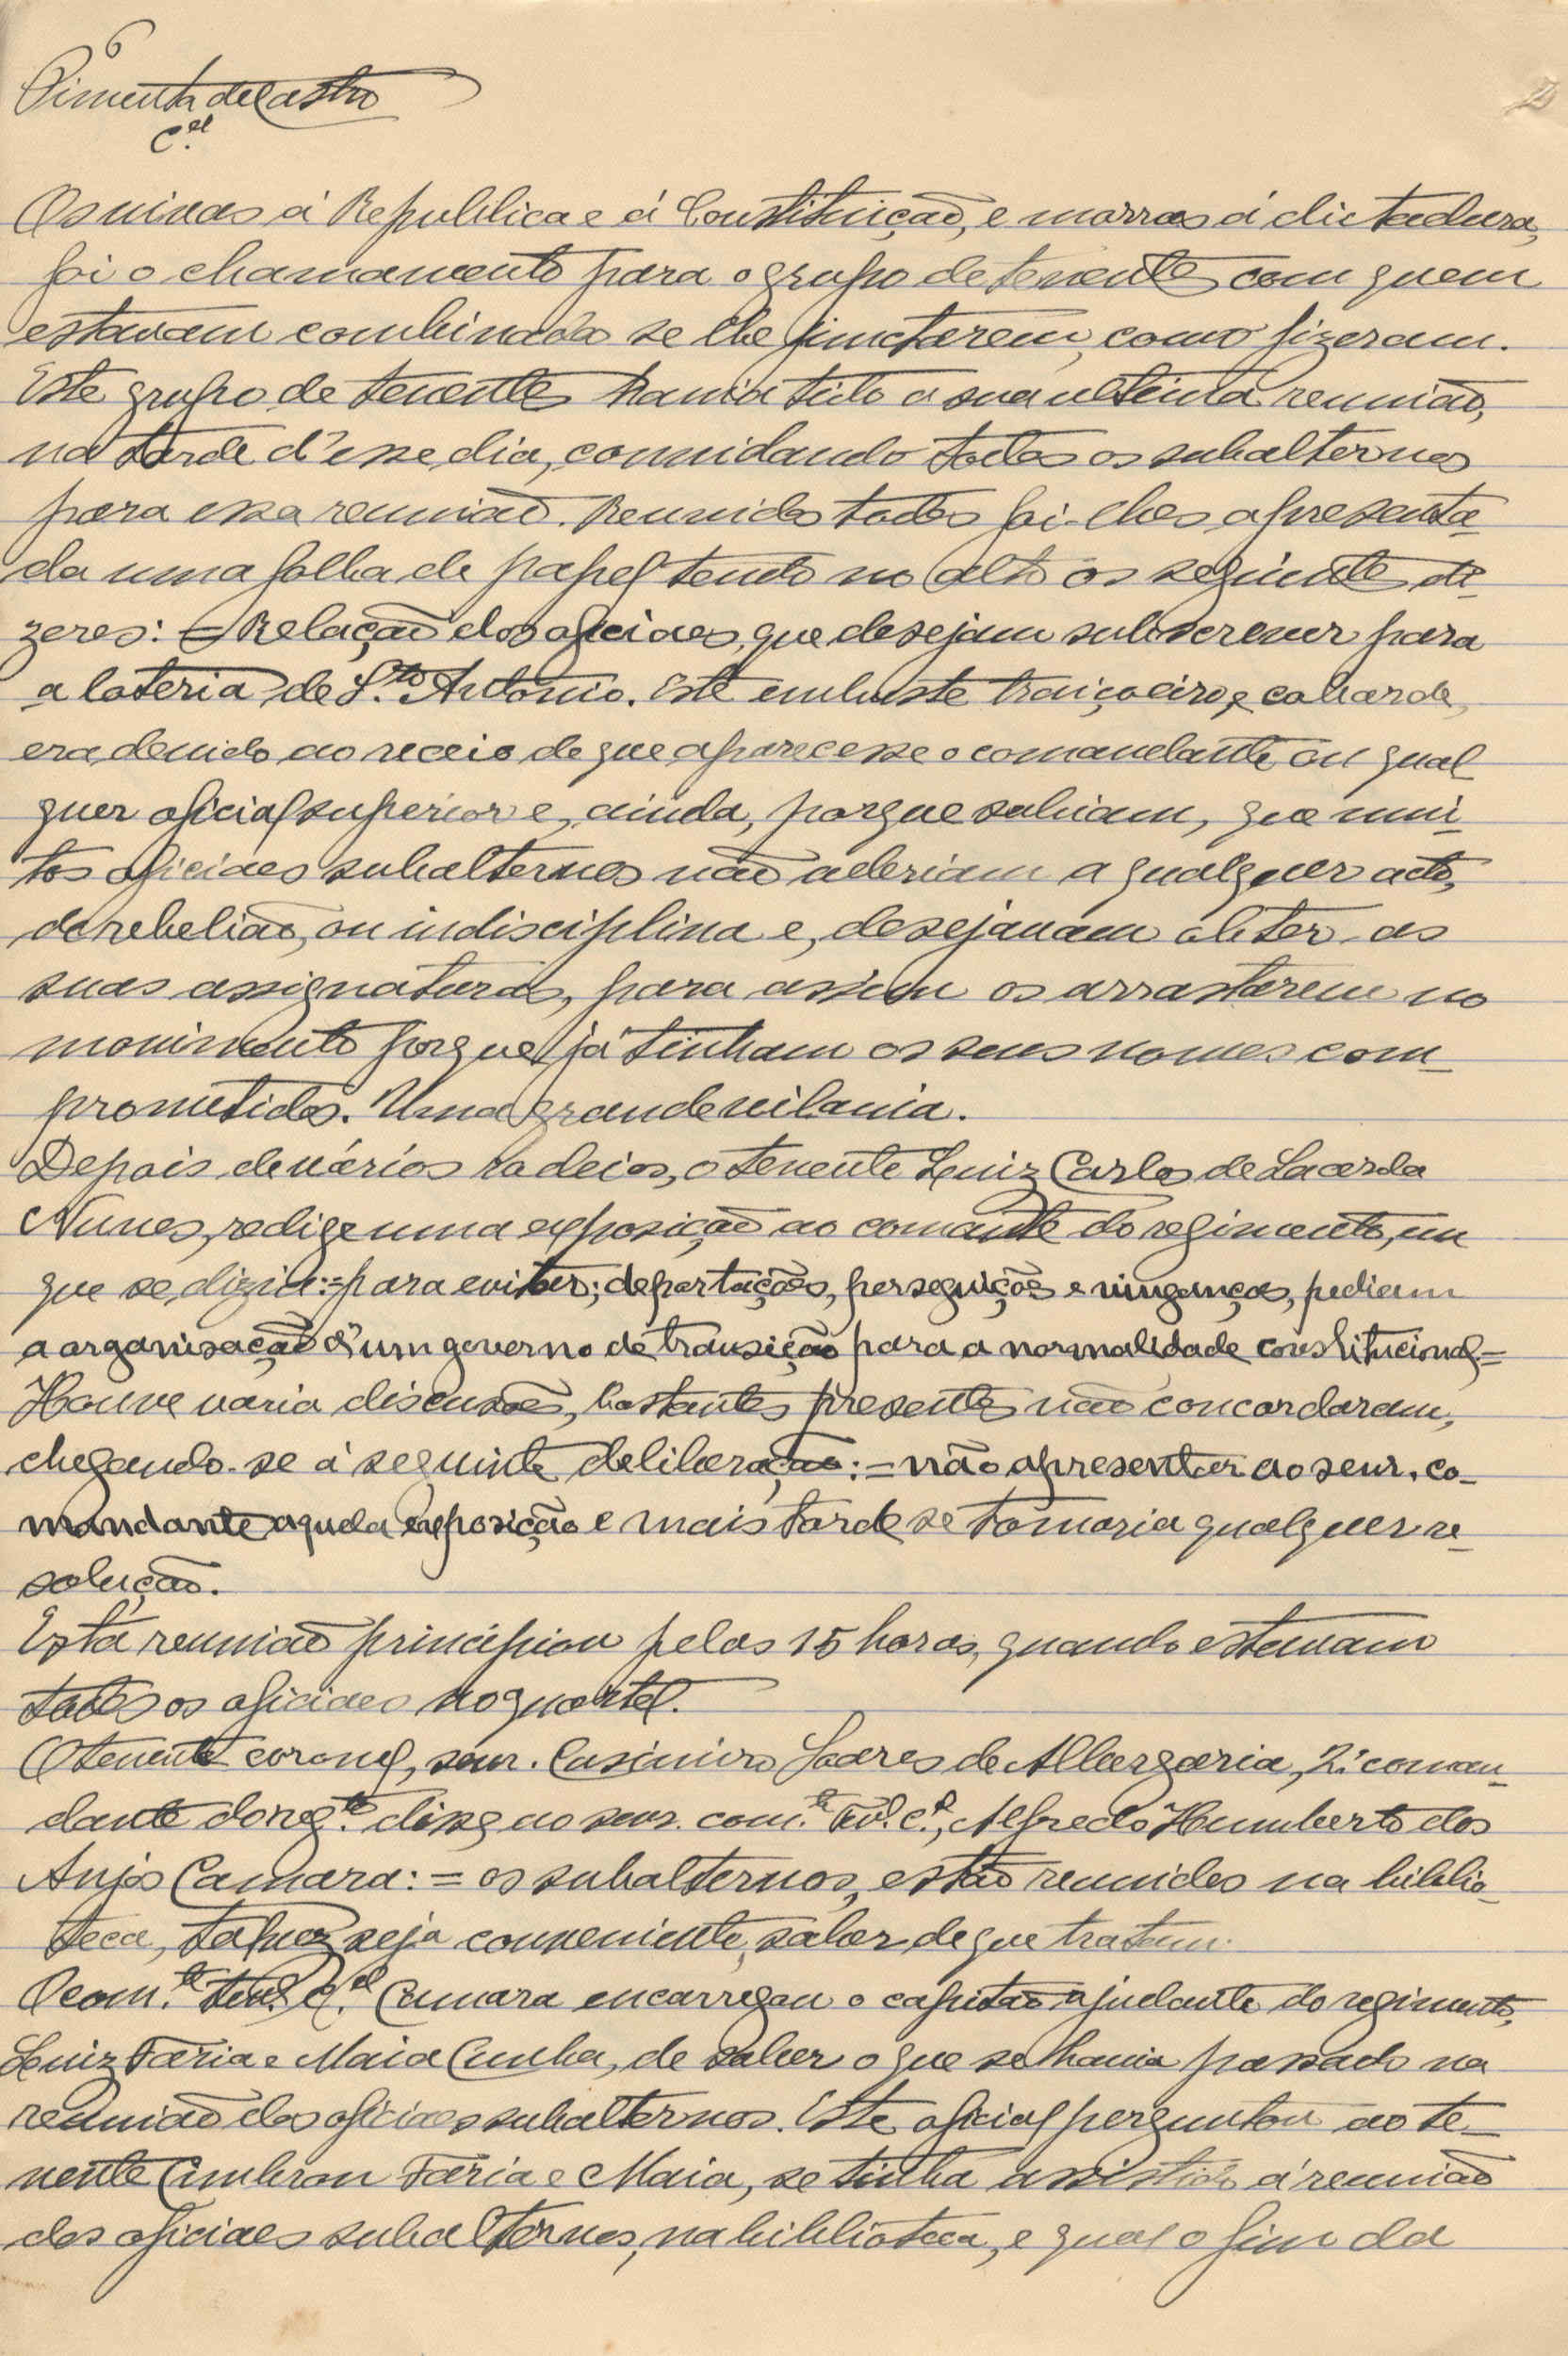 6
Pimenta de Castro
C.el
Os vivas á Republica e á Constituição, e morras á dictadura,
foi o chamamento para o grupo de tenentes com quem
estavam combinados se lhe junctarem, como fizeram.
Este grupo de tenentes havia tido a sua ultima reunião,
na tarde d'esse dia, convidando todos os subalternos
para essa reunião. Reunidos todos foi-lhes apresenta-
da uma folha de papel tendo no alto os seguintes di-
zeres: = Relação dos oficiaes, que desejam subscrever para
a loteria de S.to Antonio. Este embuste traiçoeiro e cobarde,
era devido ao receio de que aparecesse o comandante ou qual-
quer oficial superior e, ainda, porque sabiam, que mui-
tos oficiaes subalternos não adeririam a qualquer acto,
de rebelião, ou indisciplina e, desejavam obter as
suas assignaturas, para assim os arrastarem no
movimento porque já tinham os seus nomes com-
prometidos. Uma grande vilania.
Depois de vários rodeios, o tenente Luiz Carlos de Lacerda
Nunes, redige uma exposição ao comante do regimento, em
que se dizia: = para evitar; deportações, perseguições e vinganças, pediam
a organisação d'um governo de transição para a normalidade constitucional =
Houve varia discussões, bastantes presentes não concordaram,
chegando-se á seguinte deliberação: = não apresentar ao senr. co-
mandante aquela exposição e mais tarde se tomaria qualquer re-
solução.
Esta reunião principiou pelas 15 horas, quando estavam
todos os oficiaes no quartel.
O tenente coronel, senr. Casimiro Soares de Albergaria, 2.º coman-
dante do reg.to disse ao senr. com.te ten.e C.el, Alfredo Humberto dos
Anjos Camara: = os subalternos, estão reunidos na biblio-
teca, talvez seja conveniente, saber de que tratam.
O com.te ten.e C.el Camara encarregou o capitão ajudante do regimento,
Luiz Faria e Maia Cunha, de saber o que se havia passado na
reunião dos oficiaes subalternos. Este oficial perguntou ao te-
nente Cimbron Faria e Maia, se tinha assistido á reunião
dos oficiaes subalternos, na biblioteca, e qual o fim da